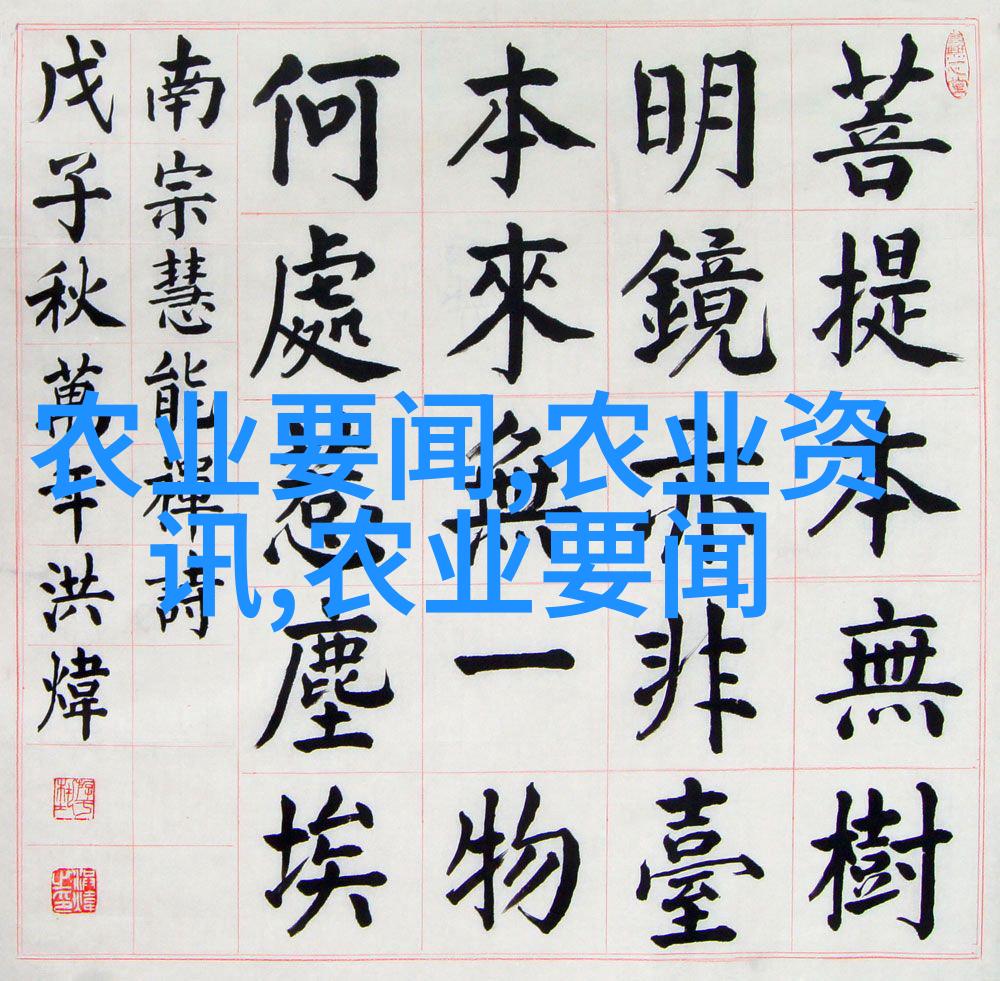 菩提本無樹
明鏡亦非臺
本來無一物
何處惹塵埃
南宗慧能禪詩
戊子秋萬年洪煒
农业要闻,农业资
讯,农业要闻